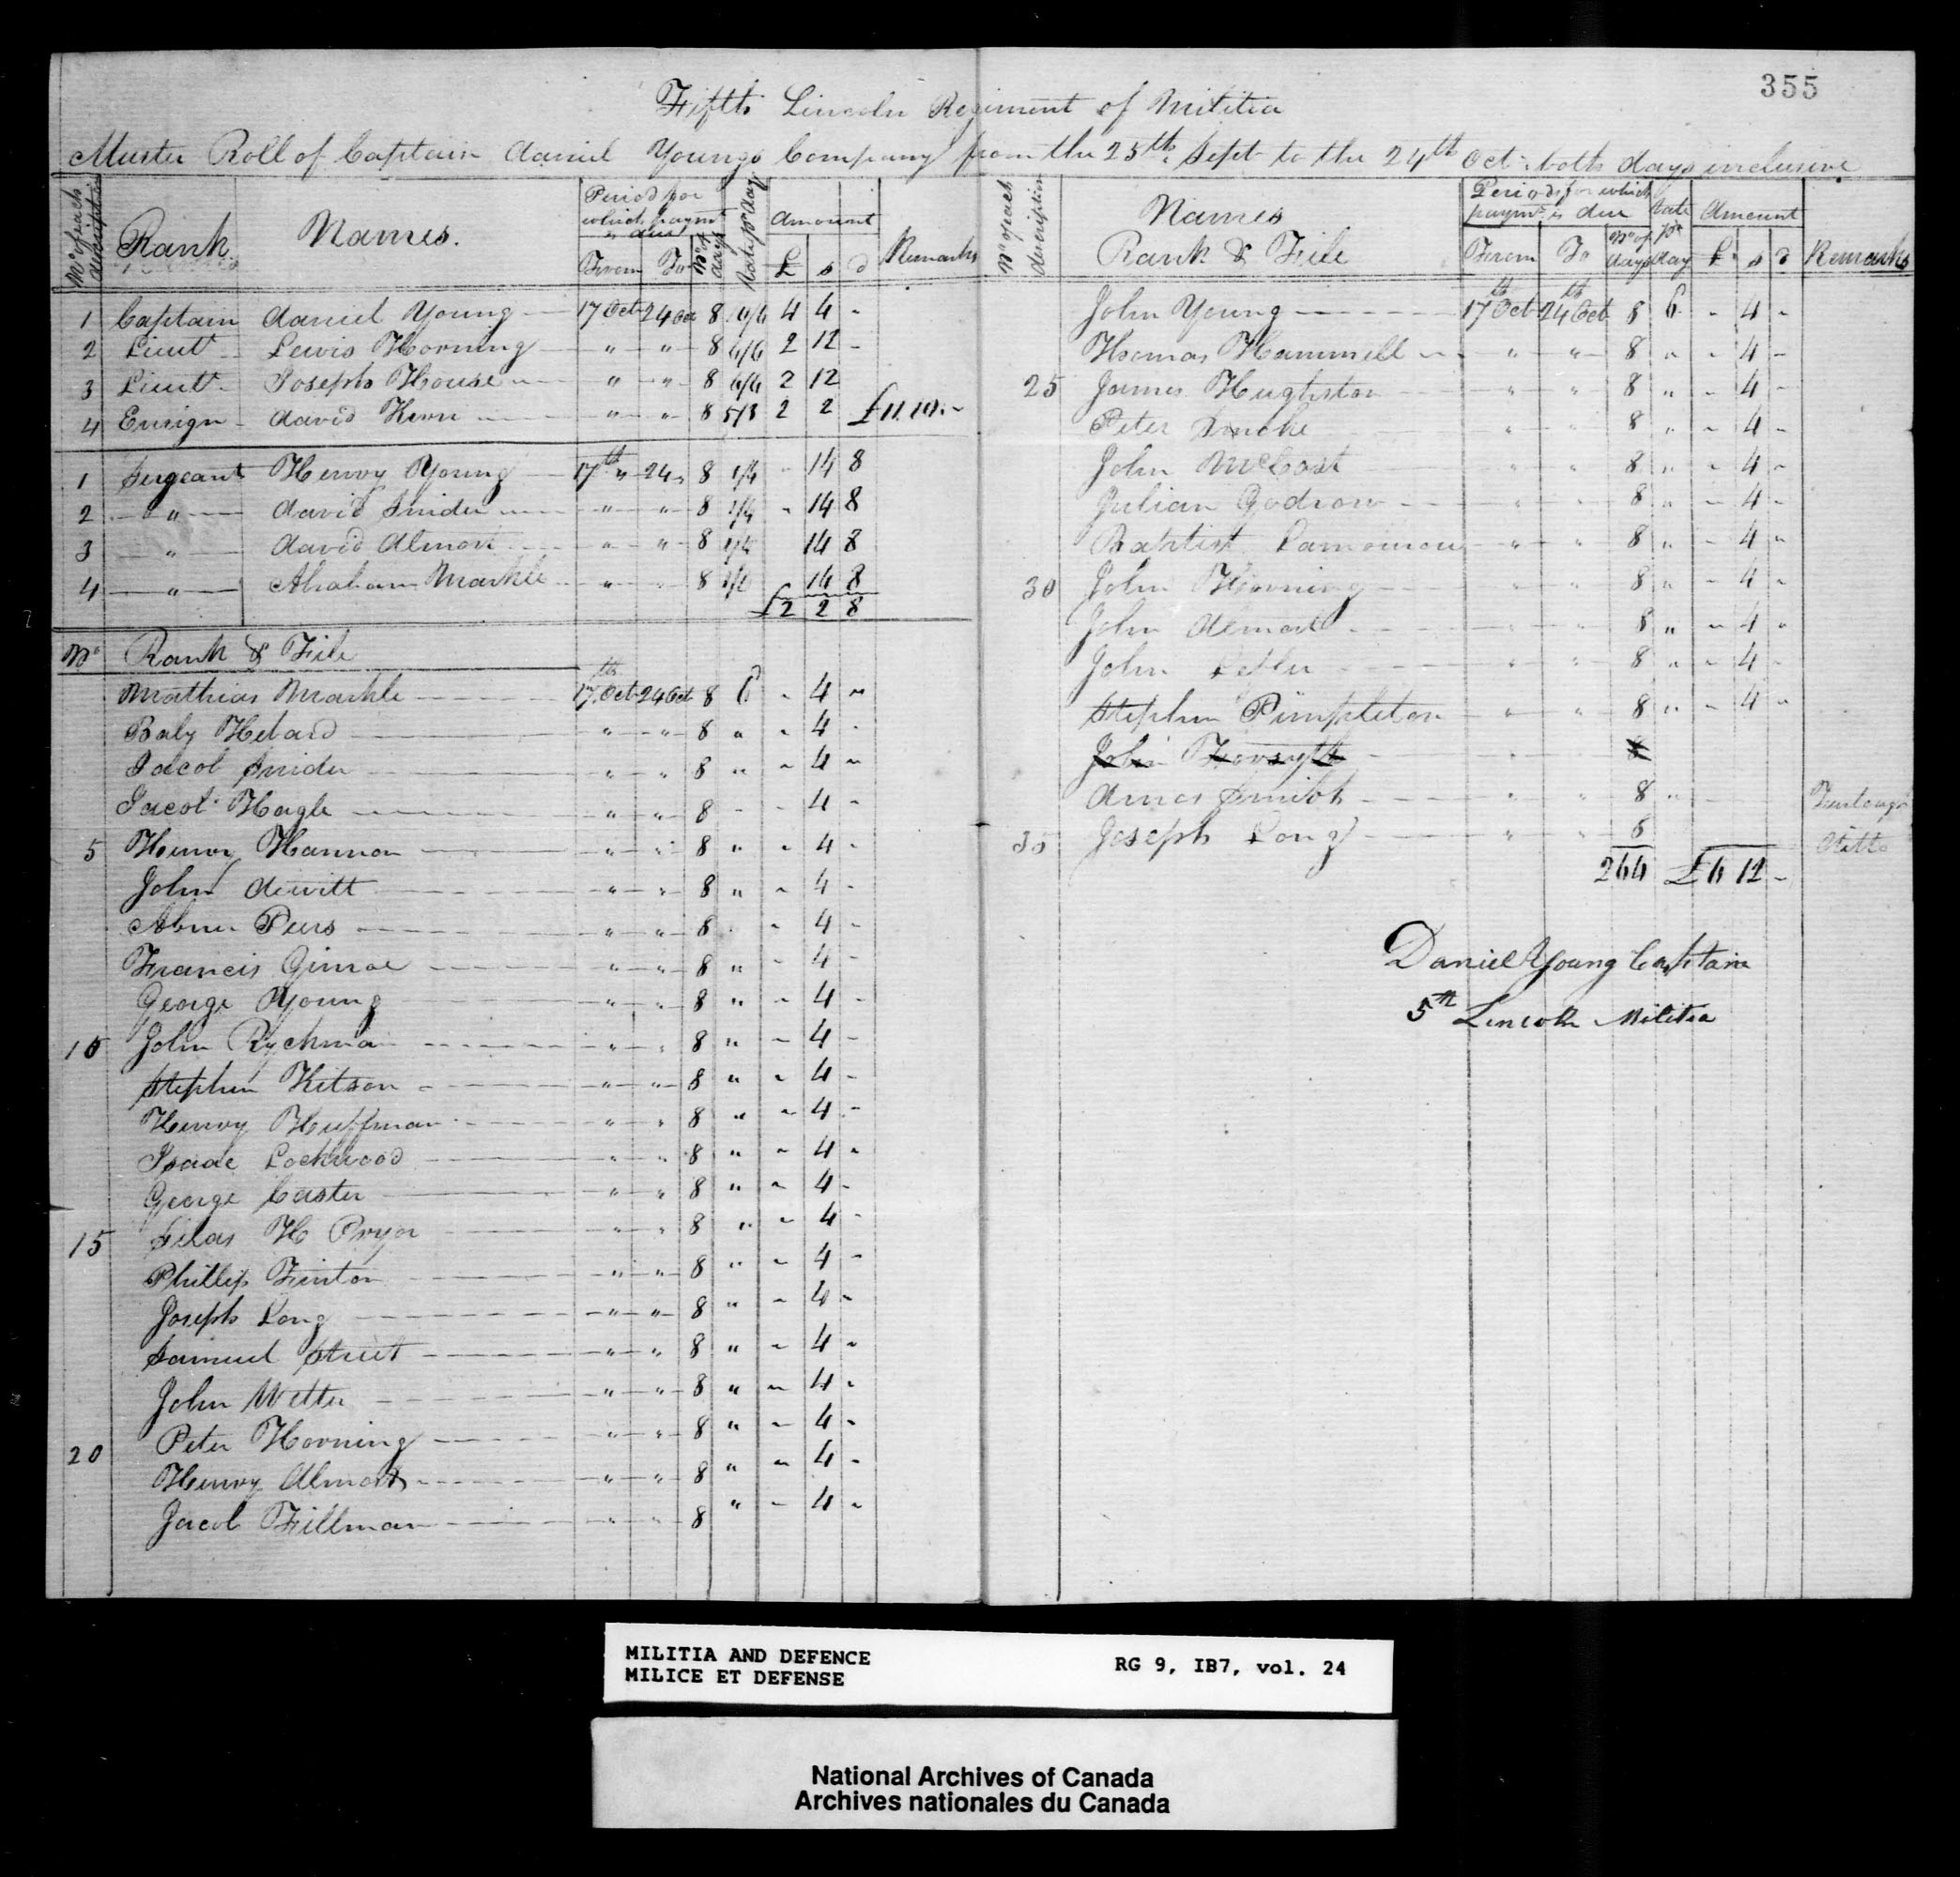 355
Fifth Lincoln Regiment of Militia
Muster Roll of Captain Daniel Youngs Company from the 25th Sept to the 24th Oct. both days inclusive
No of each description Rank Names. Period for which paymt is due Rate pr day Amount Remarks
From To No of days £ s d
1 Captain Daniel Young 17 Oct 24 Oct 8 10/6 4 4 -
2 Lieut Lewis Horning " " 8 6/6 2 12 -
3 Lieut Joseph House " " 8 6/6 2 12
4 Ensign David Kern " " 8 5/3 2 2 £11.10.-
1 Sergeant Henry Young 17th " 24 " 8 1/4 - 14 8
2 " David Snider " " 8 1/4 - 14 8
3 " David Almost " " 8 1/4 14 8
4 " Abraham Markle " " 8 14 8
£2 2 8
No Rank & File
Mathias Markle 17th Oct 24 Oct 8 6 - 4 -
Baly Hetard " " 8 " - 4 -
Jacob Snider " " 8 " - 4 -
Jacob Hagle " " 8 - - 4 -
5 Henry Hannon " " 8 " - 4 -
John Dewitt " " 8 " - 4 -
Abner Peirs " " 8 - 4 -
Francis Gimoe " " 8 " - 4 -
George Young " " 8 " - 4 -
10 John Rychman " " 8 " - 4 -
Stephen Kitson " " 8 " - 4 -
Henry Huffman " " 8 " - 4 -
Isaac Lockwood " " 8 " - 4 -
George Caster " " 8 " - 4 -
15 Silas H Pryor " " 8 " - 4 -
Phillip Finton " " 8 " - 4 -
Joseph Long " " 8 " - 4 -
Samuel Street " " 8 " - 4 -
John Wetter " " 8 " - 4 -
20 Peter Horning " " 8 " - 4 -
Henry Almost " " 8 " - 4 -
Jacob Fillman " " 8 " - 4 -
No of each description Names Rank & File Periods for which paymt is due Rate pr day Amount Remarks
From To No of days £ s d
John Young 17th Oct 24th Oct 8 6 - 4 -
Thomas Hammill " " 8 " - 4 -
25 James Hughston " " 8 " - 4 -
Peter Smoke " " 8 " - 4 -
John McCart " " 8 " - 4 -
Julian Godrow " " 8 " - 4 -
Baptist Lamoinou " " 8 " - 4 -
30 John Horning " " 8 " - 4 -
John Almost " " 8 " - 4 -
John Petter " " 8 " - 4 -
Stephen Pumpleton " " 8 " - 4 -
John Forsyth " 8
Amos Smith " " 8 " Furlough
35 Joseph Long " " 8 ditto
264 £6 12 -
Daniel Young Captain
5th Lincoln Militia
MILITIA AND DEFENCE
MILICE ET DEFENSE
RG 9, IB7, vol. 24
National Archives of Canada
Archives nationales du Canada